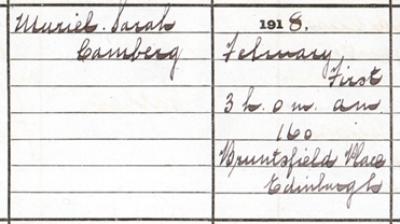 Muriel. Sarah
Camberg
1918.
February
First
3 h. 0 m. am
160
Bruntsfield Place
Edinburgh